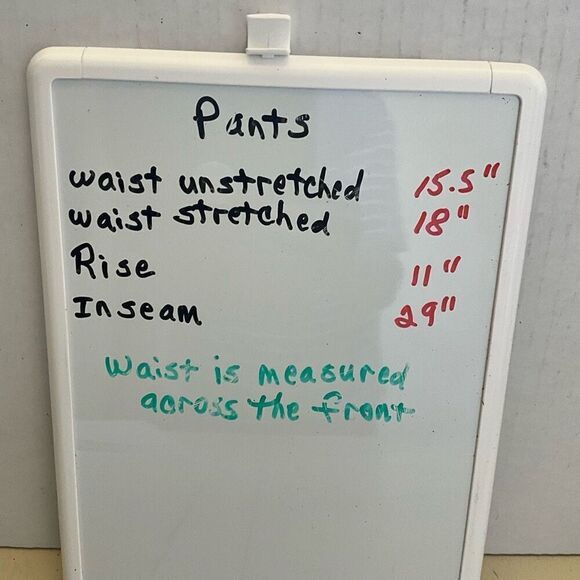 Pants
waist unstretched 15.5"
waist stretched 18"
Rise 11"
Inseam 29"
Waist is measured
across the front